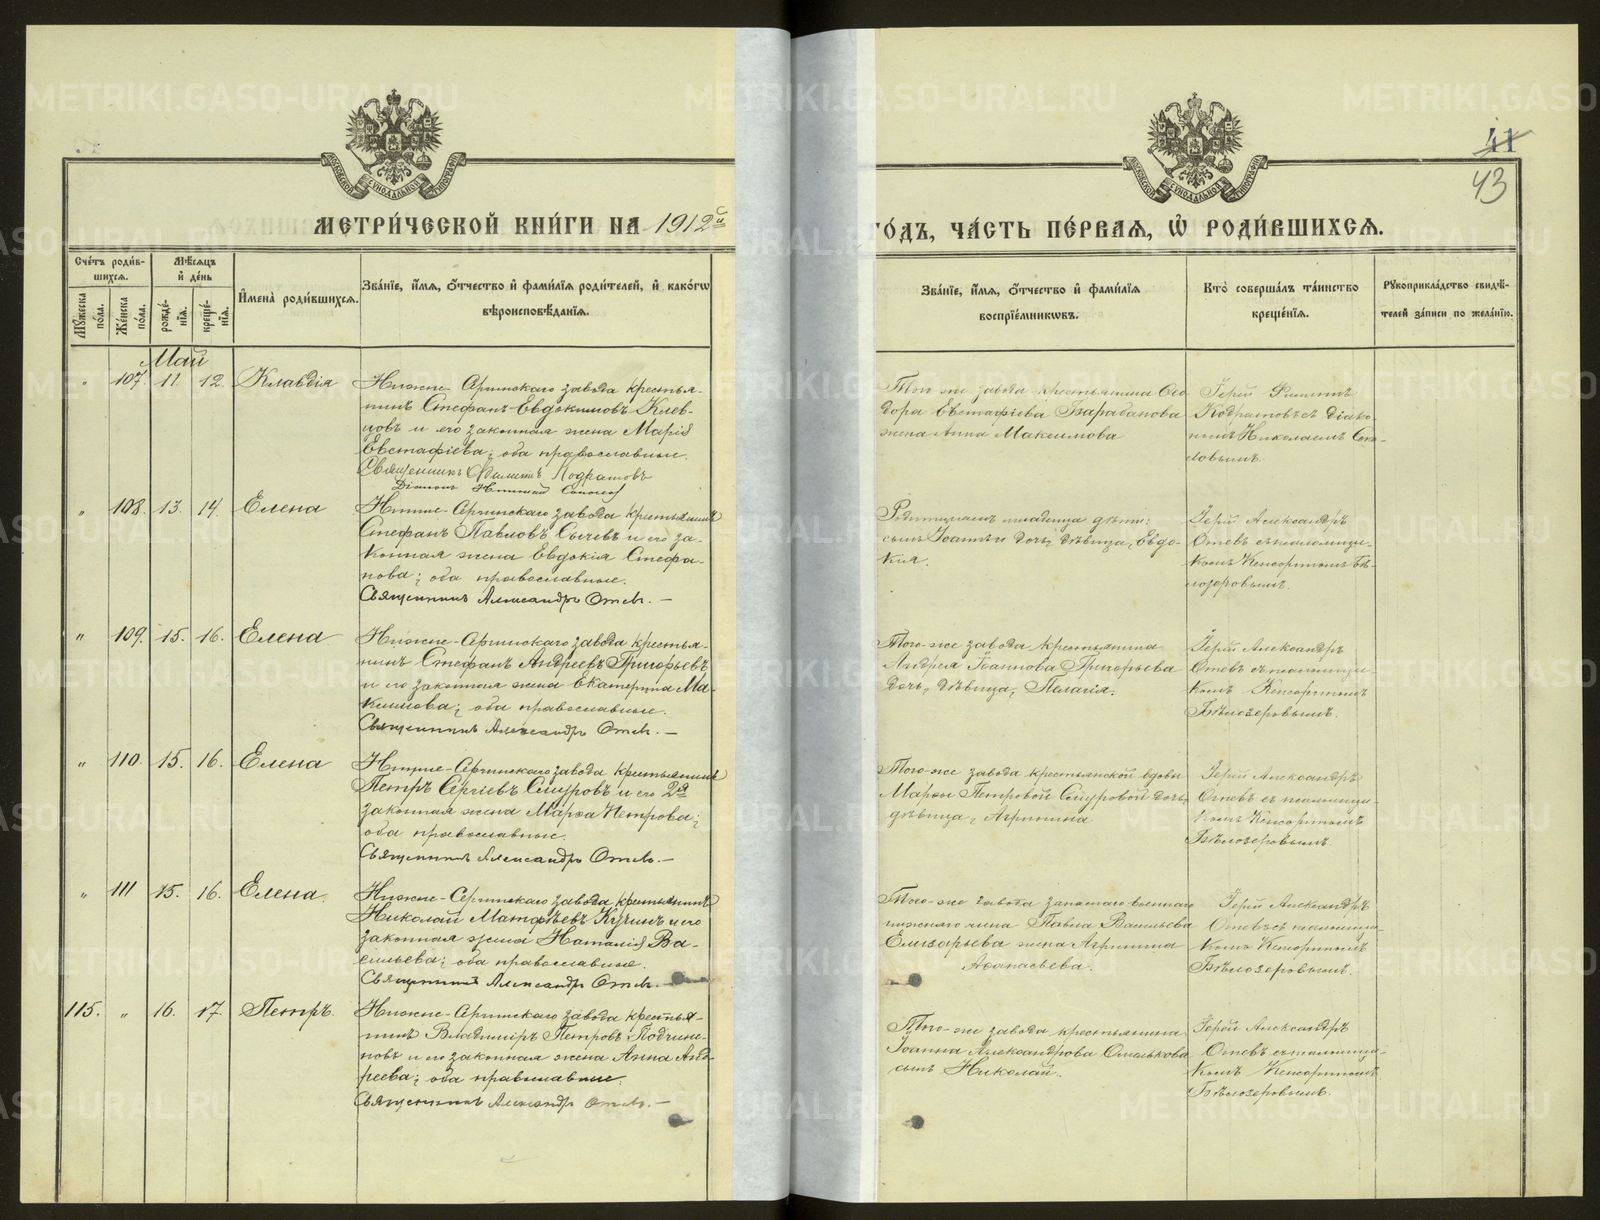 41
43
МОСКОВСКОЙ СѴНОДАЛЬНОЙ ТИПОГРАФІИ
МОСКОВСКОЙ СѴНОДАЛЬНОЙ ТИПОГРАФІИ
МЕТРИ́ЧЕСКОЙ КНИ́ГИ НА 1912й
ГО́ДЪ, ЧА́СТЬ ПЕ́РВАЯ, Ѡ҆ РОДИ́ВШИХСЯ.
Сче́тъ роди́в-
шихся.
Му́жеска
по́ла.
Же́нска
по́ла.
Мѣ́сяцъ
и҆ де́нь
рожде́-
нїя.
креще́-
нїя.
И҆мена̀ роди́вшихся.
Зва́нїе, и҆́мя, о҆́тчество и҆ фами́лїя роди́телей, и҆ како́гѡ
вѣроисповѣ́данїя.
Зва́нїе, и҆́мя, о҆́тчество и҆ фами́лїя
воспрїе́мникѡвъ.
Кто̀ соверша́лъ та́инство
креще́нїя.
Рукоприкла́дство свидѣ́-
телей за́писи по жела́нїю.
Май
" 107. 11. 12. Клавдія
Нижне-Сергинскаго завода крестья-
нинъ Стефанъ Евдокимовъ Клев-
цовъ и его законная жена Марія
Евстафіева; оба православные.
Священникъ Филиппъ Кодратовъ
Діаконъ Николай
Того-же завода крестьянина Ѳео-
дора Евстафіева Барабанова
жена Анна Максимова
Іерей Филиппъ
Кодратовъ съ діако-
номъ Николаемъ Соко-
ловымъ.
" 108. 13. 14. Елена
Нижне-Сергинскаго завода крестьянинъ
Стефанъ Павловъ Сычевъ и его за-
конная жена Евдокія Стефа-
нова; оба православные.
Священникъ Александръ Отев. —
Родителямъ младенца дѣти:
сынъ Іоаннъ и дочь, дѣвица, Евдо-
кія.
Іерей Александръ
Отевъ съ псаломщи-
комъ Кенсориномъ Бѣ-
лозеровымъ.
" 109. 15. 16. Елена
Нижне-Сергинскаго завода крестья-
нинъ Стефанъ Андреевъ Григорьевъ
и его законная жена Екатерина Ма-
ксимова; оба православные.
Священникъ Александръ Отев. —
Того-же завода крестьянина
Андрея Іоаннова Григорьева
дочь, дѣвица, Пелагія.
Іерей Александръ
Отевъ съ псаломщи-
комъ Кенсориномъ
Бѣлозеровымъ.
" 110. 15. 16. Елена
Нижне-Сергинскаго завода крестьянинъ
Петръ Сергіевъ Смуровъ и его 2я
законная жена Марѳа Петрова;
оба православные.
Священникъ Александръ Отев. —
Того-же завода крестьянской вдовы
Марѳы Петровой Смуровой дочь,
дѣвица, Агриппина
Іерей Александръ
Отевъ съ псаломщи-
комъ Кенсориномъ
Бѣлозеровымъ.
" 111 15. 16. Елена.
Нижне-Сергинскаго завода крестьянинъ
Николай Матѳѣевъ Кузинъ и его
законная жена Наталія Ва-
сильева; оба православные.
Священникъ Александръ Отев. —
Того-же завода запаснаго военнаго
нижняго чина Павла Васильева
Елизарьева жена Агриппина
Аѳанасьева.
Іерей Александръ
Отевъ съ псаломщи-
комъ Кенсориномъ
Бѣлозеровымъ.
115. " 16. 17. Петръ.
Нижне-Сергинскаго завода крестья-
нинъ Владиміръ Петровъ Подчине-
новъ и его законная жена Анна Анд-
реева; оба православные.
Священникъ Александръ Отев. —
Того-же завода крестьянина
Іоанна Александрова Омелькова
сынъ Николай.
Іерей Александръ
Отевъ съ псаломщи-
комъ Кенсориномъ
Бѣлозеровымъ.
METRIKI.GASO-URAL.RU